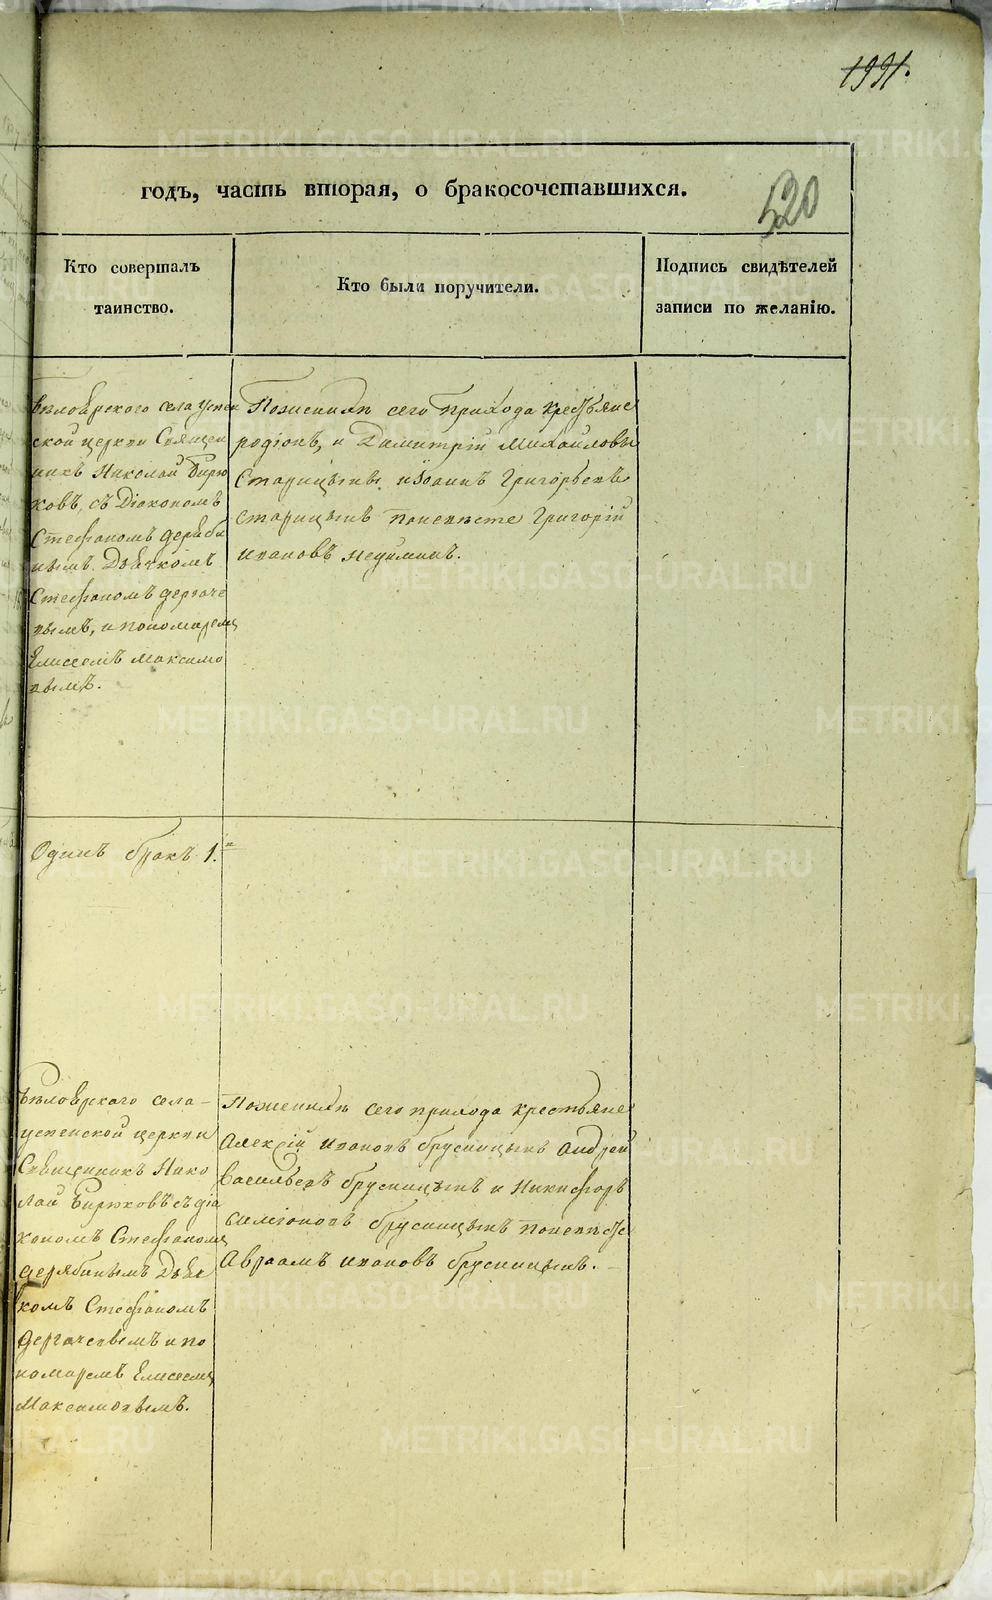 1991.
годъ, часть вторая, о бракосочетавшихся.
520
Кто совершалъ
таинство.
Кто были поручители.
Подпись свидѣтелей
записи по желанію.
Бѣлоярского села Успен
ской церкви Священ
никъ Николай Бирю
ковъ, съ Діакономъ
Стефаномъ Деряби
нымъ. Дьячкомъ
Стефаномъ Дергаче
вымъ, и пономаремъ
Елисеемъ Максимо
вымъ.
Поженихѣ сего прихода крестьяне
Родіонъ, и Димитрій Михайловы
Старицыны, и Іоаннъ Григорьевъ
Старицынъ поневѣсте Григорій
Ивановъ
Одинъ бракъ 1.
Бѣлоярскаго села
Успенской церкви
Священникъ Нико
лай Бирюковъ съ діа
кономъ Стефаномъ
Дерябинымъ Дьяч
комъ Стефаномъ
Дергачевымъ и по
номаремъ Елисеемъ
Максимовымъ.
Поженихѣ сего прихода крестьяне
Алексій Ивановъ Брусницынъ Андрей
Васильевъ Брусницынъ и Никифоръ
Симіоновъ Брусницынъ поневѣсте
Авраамъ Ивановъ Брусницынъ.
METRIKI.GASO-URAL.RU